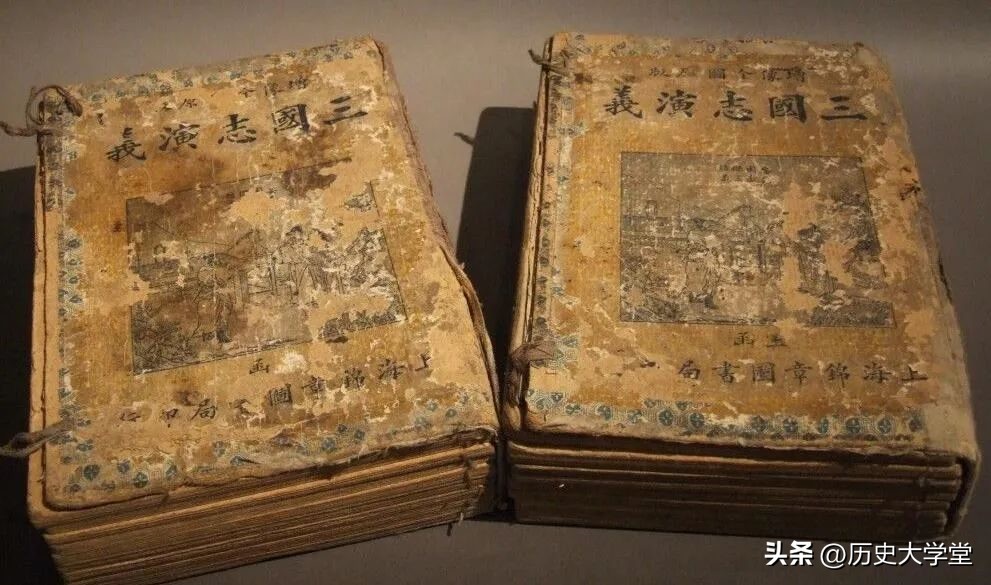 增像全
三國志演義
函
上海錦章圖局印
增像全圖版
三國志演義
上函
上海錦章圖書局
头条 @历史大学堂